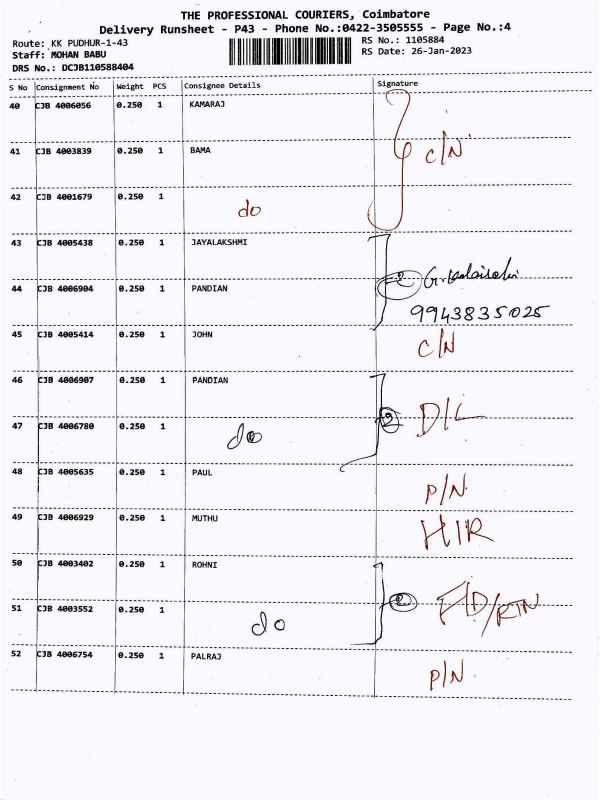 THE PROFESSIONAL COURIERS, Coimbatore
Delivery Runsheet - P43 - Phone No.:0422-3505555 - Page No.:4
Route: KK PUDHUR-1-43
RS No.: 1105884
Staff: MOHAN BABU
RS Date: 26-Jan-2023
DRS No.: DCJB110588404
S No Consignment No Weight PCS Consignee Details Signature
40 CJB 4006056 0.250 1 KAMARAJ
41 CJB 4003839 0.250 1 BAMA C/N
42 CJB 4001679 0.250 1 do
43 CJB 4005438 0.250 1 JAYALAKSHMI
44 CJB 4006904 0.250 1 PANDIAN 2
9943835025
45 CJB 5005414 0.250 1 JOHN C/N
46 CJB 4006907 0.250 1 PANDIAN
47 CJB 4006780 0.250 1 do 2 D/L
48 CJB 4005635 0.250 1 PAUL P/N
49 CJB 4006929 0.250 1 MUTHU H/R
50 CJB 4003402 0.250 1 ROHNI
51 CJB 4003552 0.250 1 do 2 /RTN
52 CJB 4006754 0.250 1 PALRAJ P/N